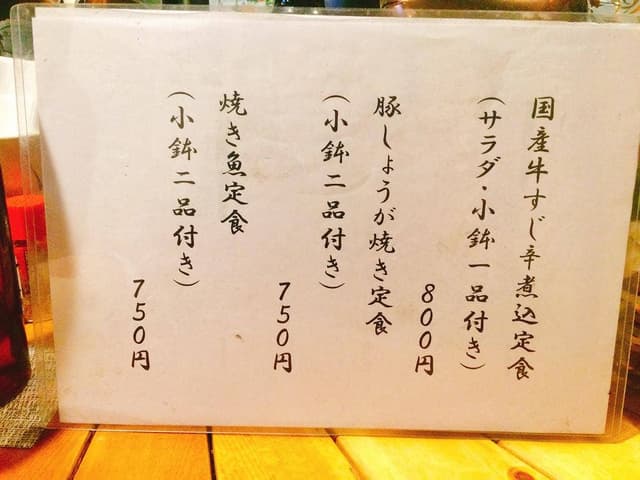 国産牛すじ辛煮込定食
（サラダ・小鉢一品付き）
800円
豚しょうが焼き定食
（小鉢二品付き）
750円
焼き魚定食
（小鉢二品付き）
750円